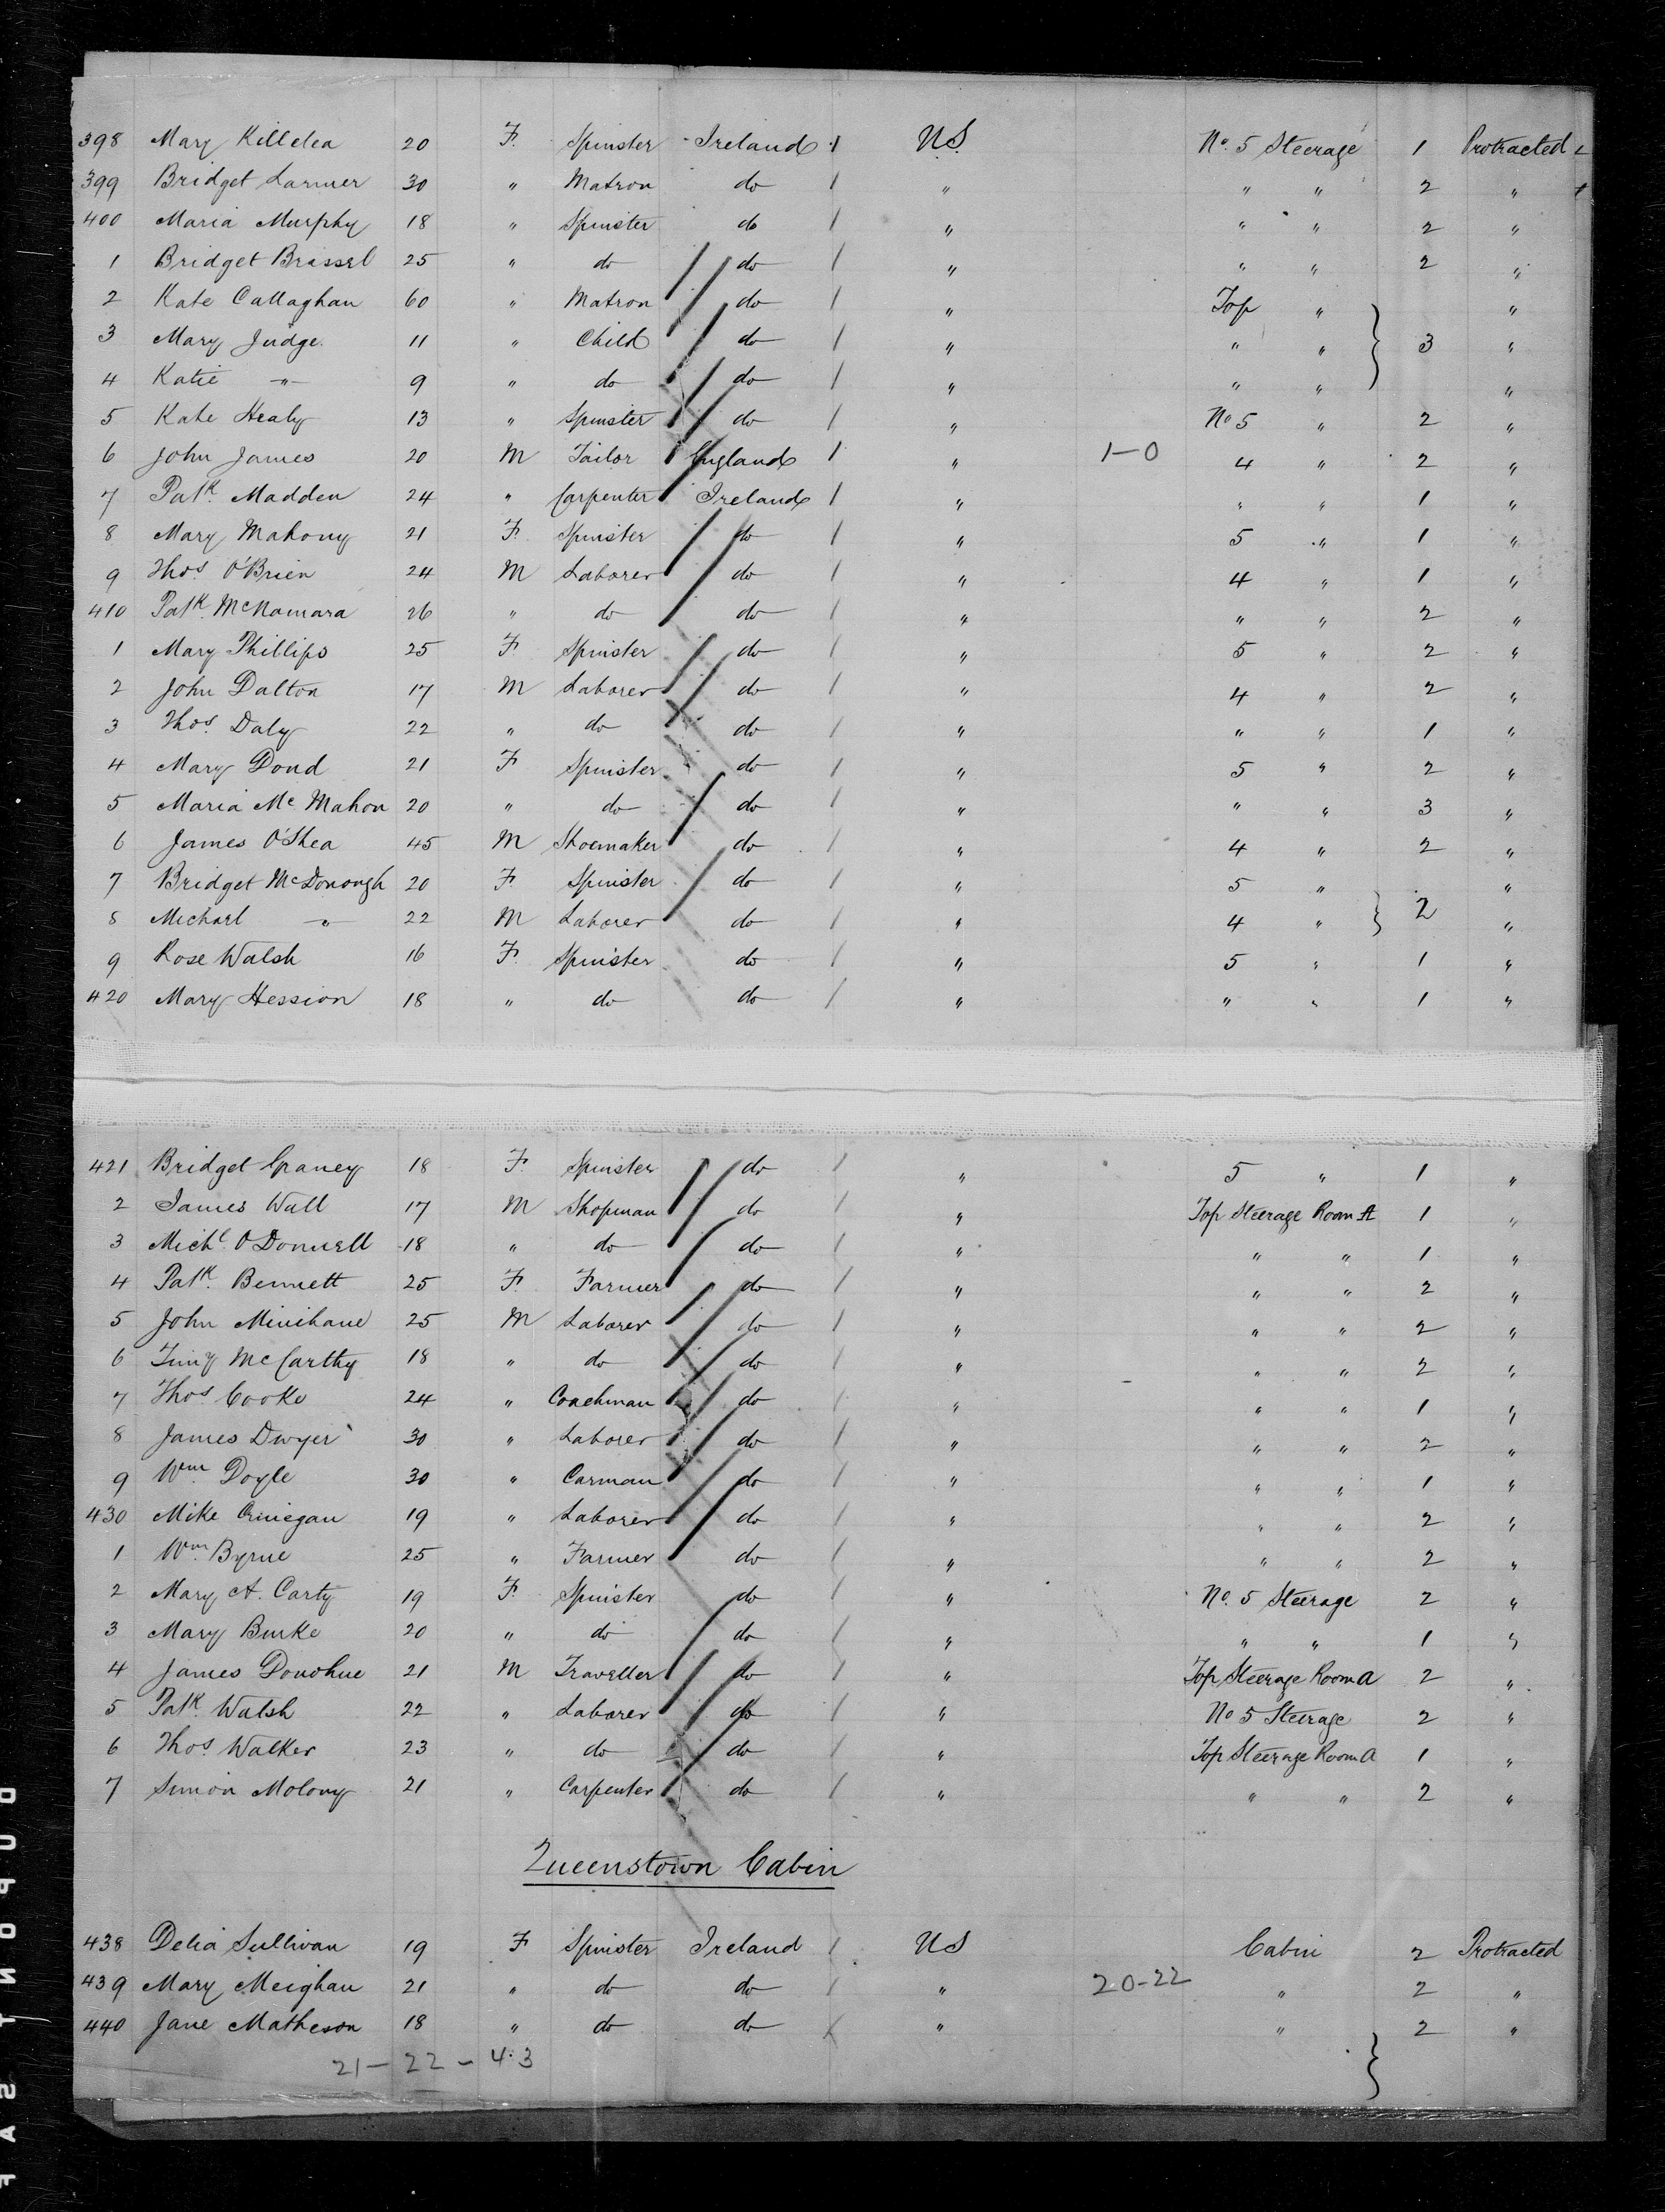 398 Mary Killelea 20 F. Spinster Ireland 1 U.S. No. 5 Steerage 1 Protracted
399 Bridget Larmer 30 " Matron do 1 " " " 2 "
400 Maria Murphy 18 " Spinster do 1 " " " 2 "
1 Bridget Brassel 25 " do do 1 " " " 2 "
2 Kate Callaghan 60 " Matron do 1 " Top " "
3 Mary Judge 11 " Child do 1 " " " } 3 "
4 Katie -"- 9 " do do 1 " " " "
5 Kate Healy 13 " Spinster do 1 " No 5 " 2 "
6 John James 20 M Tailor England 1 " 1-0 4 " 2 "
7 Patk. Madden 24 " Carpenter Ireland 1 " " " 1 "
8 Mary Mahony 21 F. Spinster do 1 " 5 " 1 "
9 Thos. O'Brien 24 M Laborer do 1 " 4 " 1 "
410 Patk. McNamara 26 " do do 1 " " " 2 "
1 Mary Phillips 25 F Spinster do 1 " 5 " 2 "
2 John Dalton 17 M Laborer do 1 " 4 " 2 "
3 Thos. Daly 22 " do do 1 " " " 1 "
4 Mary Dond 21 F Spinster do 1 " 5 " 2 "
5 Maria Mc Mahon 20 " do do 1 " " " 3 "
6 James O'Shea 45 M Shoemaker do 1 " 4 " 2 "
7 Bridget McDonough 20 F. Spinster do 1 " 5 " "
8 Michael -"- 22 M Laborer do 1 " 4 " } 2 "
9 Rose Walsh 16 F. Spinster do 1 " 5 " 1 "
420 Mary Hession 18 " do do 1 " " " 1 "
421 Bridget Graney 18 F. Spinster do 1 " 5 " 1 "
2 James Wall 17 M Shopman do 1 " Top Steerage Room A 1 "
3 Michl. O'Donnell 18 " do do 1 " " " 1 "
4 Patk. Bennett 25 F. Farmer do 1 " " " 2 "
5 John Minihane 25 M Laborer do 1 " " " 2 "
6 Timy McCarthy 18 " do do 1 " " " 2 "
7 Thos Cooke 24 " Coachman do 1 " " " 1 "
8 James Dwyer 30 " Laborer do 1 " " " 2 "
9 Wm. Doyle 30 " Carman do 1 " " " 1 "
430 Mike 19 " Laborer do 1 " " " 2 "
1 Wm. Byrne 25 " Farmer do 1 " " " 2 "
2 Mary A. Carty 19 F. Spinster do 1 " No. 5 Steerage 2 "
3 Mary Burke 20 " do do 1 " " " 1 "
4 James Donohue 21 M Traveller do 1 " Top Steerage Room A 2 "
5 Patk. Walsh 22 " Laborer do 1 " No 5 Steerage 2 "
6 Thos. Walker 23 " do do 1 " Top Steerage Room A 1 "
7 Simon Molony 21 " Carpenter do 1 " " " 2 "
Queenstown Cabin
438 Delia Sullivan 19 F Spinster Ireland 1 US Cabin 2 Protracted
439 Mary Meighan 21 " do do 1 " 20-22 " 2 "
440 Jane Matheson 18 " do do " " 2 "
21-22-4.3